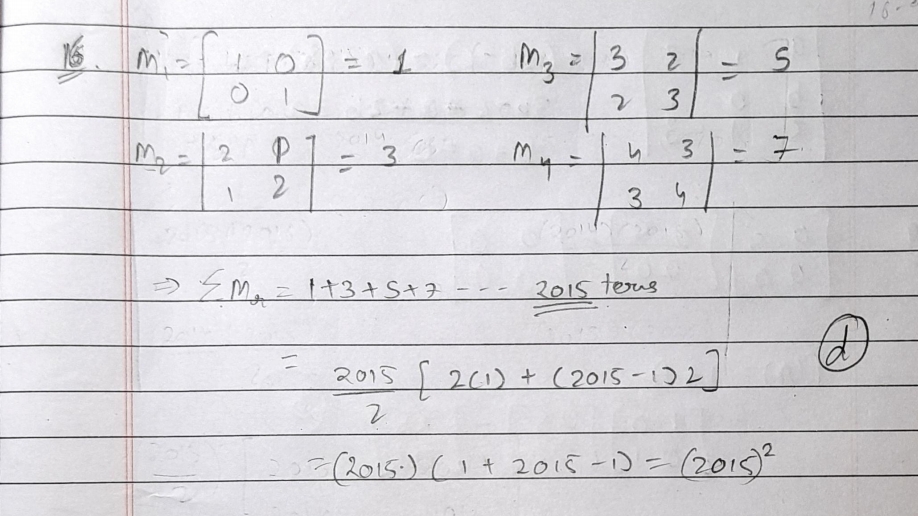 16. M₁ = [1 0] = 1 M₃ = |3 2| = 5
0 1 2 3
M₂ = |2 1| = 3 M₄ = |4 3| = 7
1 2 3 4
⇒ ΣMᵣ = 1+3+5+7 --- 2015 terms
= 2015/2 [2(1) + (2015-1)2]
(d)
= (2015.) (1 + 2015 -1) = (2015)²